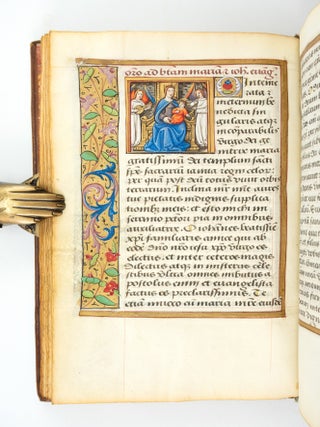 oro ad btam mariā z ioh. euāg.
Interme
rata z
ineternum be
nedicta sin
gularis atqz
incomparabilis
virgo dei ge
nitrix maria
gratissimū dei templum
sacrariū ianua regni celorz
per quā post totus orbis
terrarum. Inclina mihi aures
tue pietatis indigne supplica
tionibus meis. et esto michi mi
serrimo pctōri pia in omnibus
auxiliatrix. O iohannes beatissie
xp̄i familiaris amice qui ab
eodē dnō nr̄o ihū xpō virgo es
electus. et inter ceteros magis
dilectus atqz in misteriis cele
stibus ultra omnes imbutus a
postolus enim et euangelista
factus es preclarissimus. Te
etiā inuoco cū maria mr̄e eiusdē